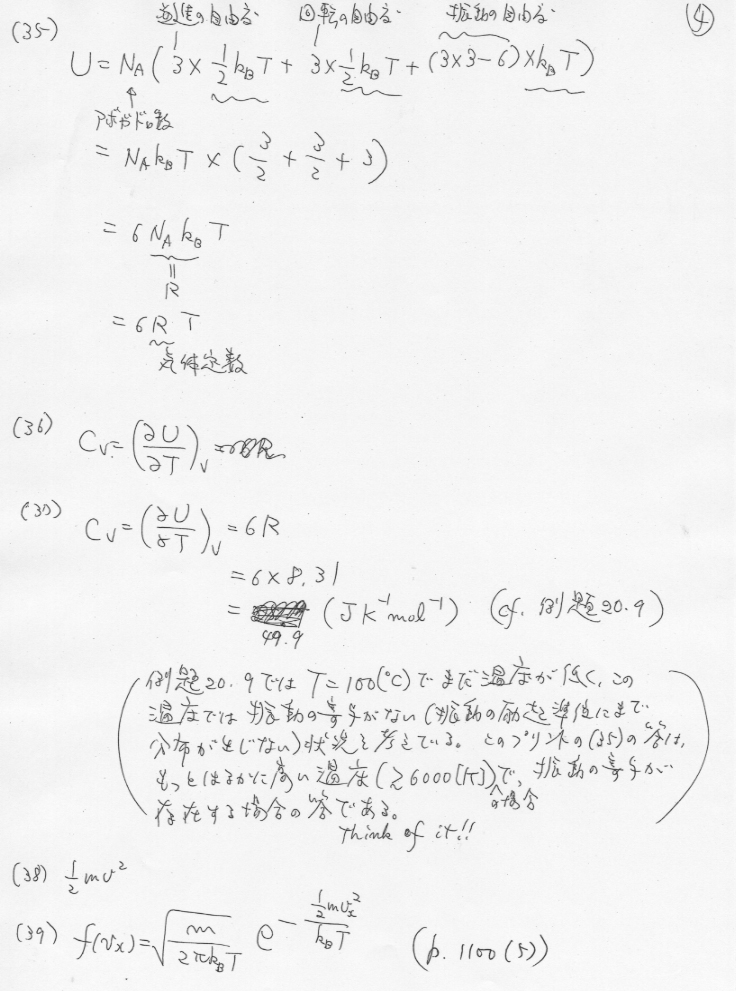 ④
並進の自由度 回転の自由度 振動の自由度
(35) U = N_A ( 3 × 1/2 k_B T + 3 × 1/2 k_B T + (3×3−6) × k_B T )
↑
アボガドロ数
= N_A k_B T × ( 3/2 + 3/2 + 3 )
= 6 N_A k_B T
॥
R
= 6 R T
気体定数
(36) C_V = (∂U/∂T)_V =
C_V = (∂U/∂T)_V = 6R
= 6 × 8.31
= 49.9 (J K⁻¹ mol⁻¹) (cf. 例題20.9)
例題20.9では T = 100(℃) でまだ温度が低く、この
温度では振動の寄与がない (振動の励起準位にまで
分布が生じない) 状況を考えている。このプリントの(35)の答は、
もっとはるかに高い温度 (≳6000[K]) で、振動の寄与が
の場合
存在する場合の答である。
Think of it!!
(38) 1/2 mv²
(39) f(v_x) = √(m / 2πk_B T) e^−(1/2 mv_x² / k_B T) (p. 1100 (5))